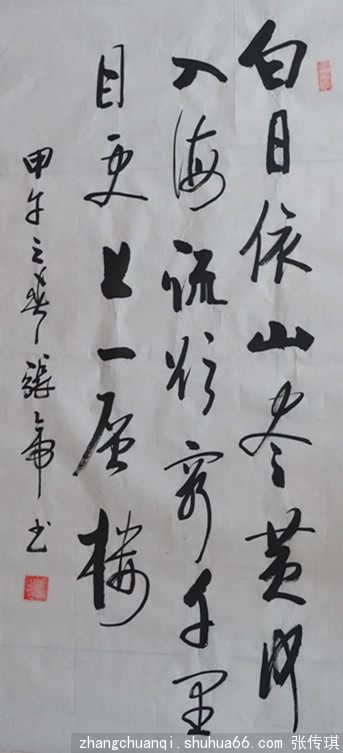 白日依山尽黄河
入海流欲穷千里
目更上一层楼
甲午之春張 书
zhangchuanqi.shuhua66.com 张传琪